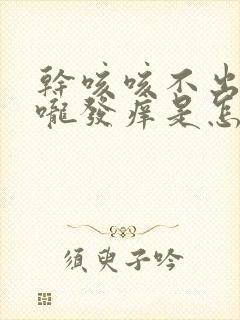 幹咳咳不出
嚨發痒是怎
須臾子吟